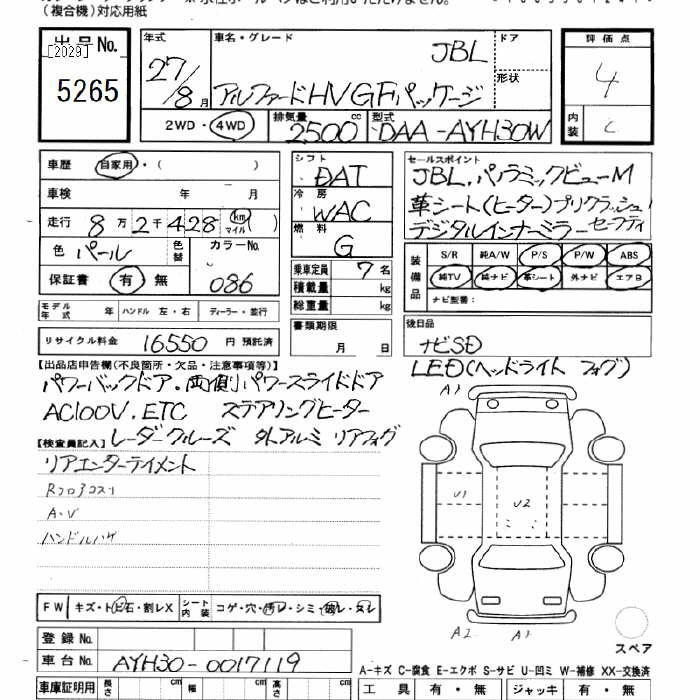 （複合機）対応用紙
出品No.
[2029]
5265
年式
27/8月
車名・グレード
JBL
アルファードHV GFパッケージ
ドア
形状
評価点
4
内装
C
2WD・4WD
排気量
2500cc
型式
DAA-AYH30W
車歴
自家用・（　　）
車検　年　月
走行　8万2千428（km マイル）
色　パール
色替
カラーNo.
086
保証書　有・無
シフト
DAT
冷房
WAC
燃料
G
乗車定員　7名
積載量　kg
総重量　kg
書類期限
月　日
セールスポイント
JBL.パノラミックビューM
革シート(ヒーター)プリクラッシュ
デジタルインナーミラー セーフティ
装備品
S/R　純A/W　P/S　P/W　ABS
純TV　純ナビ　革シート　外ナビ　エアB
ナビ型番：
モデル年式　年　ハンドル　左・右　ディーラー・並行
リサイクル料金　16550円 預託済
後日品
ナビSD
LED(ヘッドライト フォグ)
【出品店申告欄(不良箇所・欠品・注意事項等)】
パワーバックドア.両側パワースライドドア
AC100V.ETC　ステアリングヒーター
レーダークルーズ　外アルミ　リアフォグ
【検査員記入】
リアエンターテイメント
Rフロアコスリ
A・V
ハンドルハゲ
A1
U1
U2
A2
A1
スペア
FW　キズ・トビ石・割レX
シート内装　コゲ・穴・汚レ・シミ・破レ・スレ
登録No.
車台No.　AYH30-0017119
A-キズ C-腐食 E-エクボ S-サビ U-凹ミ W-補修 XX-交換済
車庫証明用　長さ　cm　幅　cm　高さ　cm
工具　有・無　ジャッキ　有・無